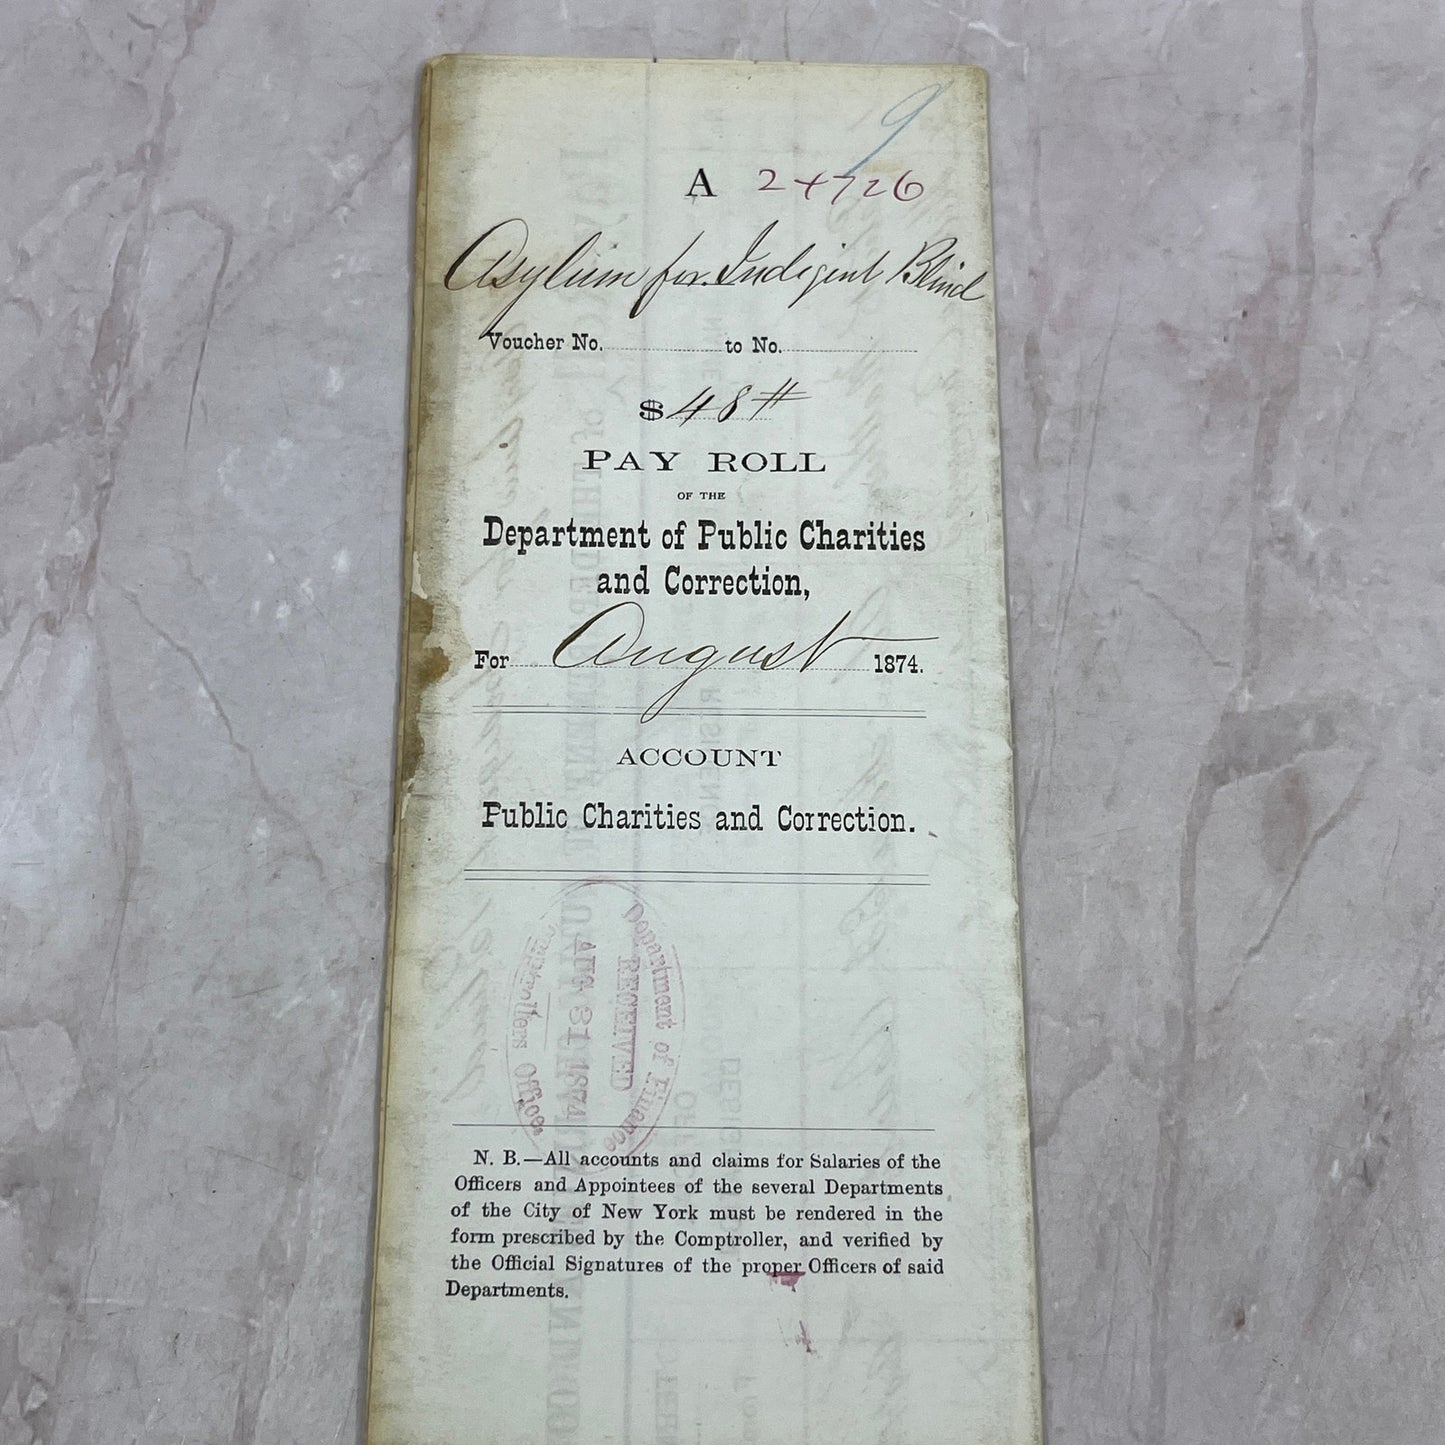 9
A 24726
Asylum for Indigent Blind
Voucher No. to No.
$ 48 #
PAY ROLL
OF THE
Department of Public Charities
and Correction,
For August 1874.
ACCOUNT
Public Charities and Correction.
Department of Finance
RECEIVED
AUG 31 1874
Comptrollers Office
N. B.—All accounts and claims for Salaries of the
Officers and Appointees of the several Departments
of the City of New York must be rendered in the
form prescribed by the Comptroller, and verified by
the Official Signatures of the proper Officers of said
Departments.